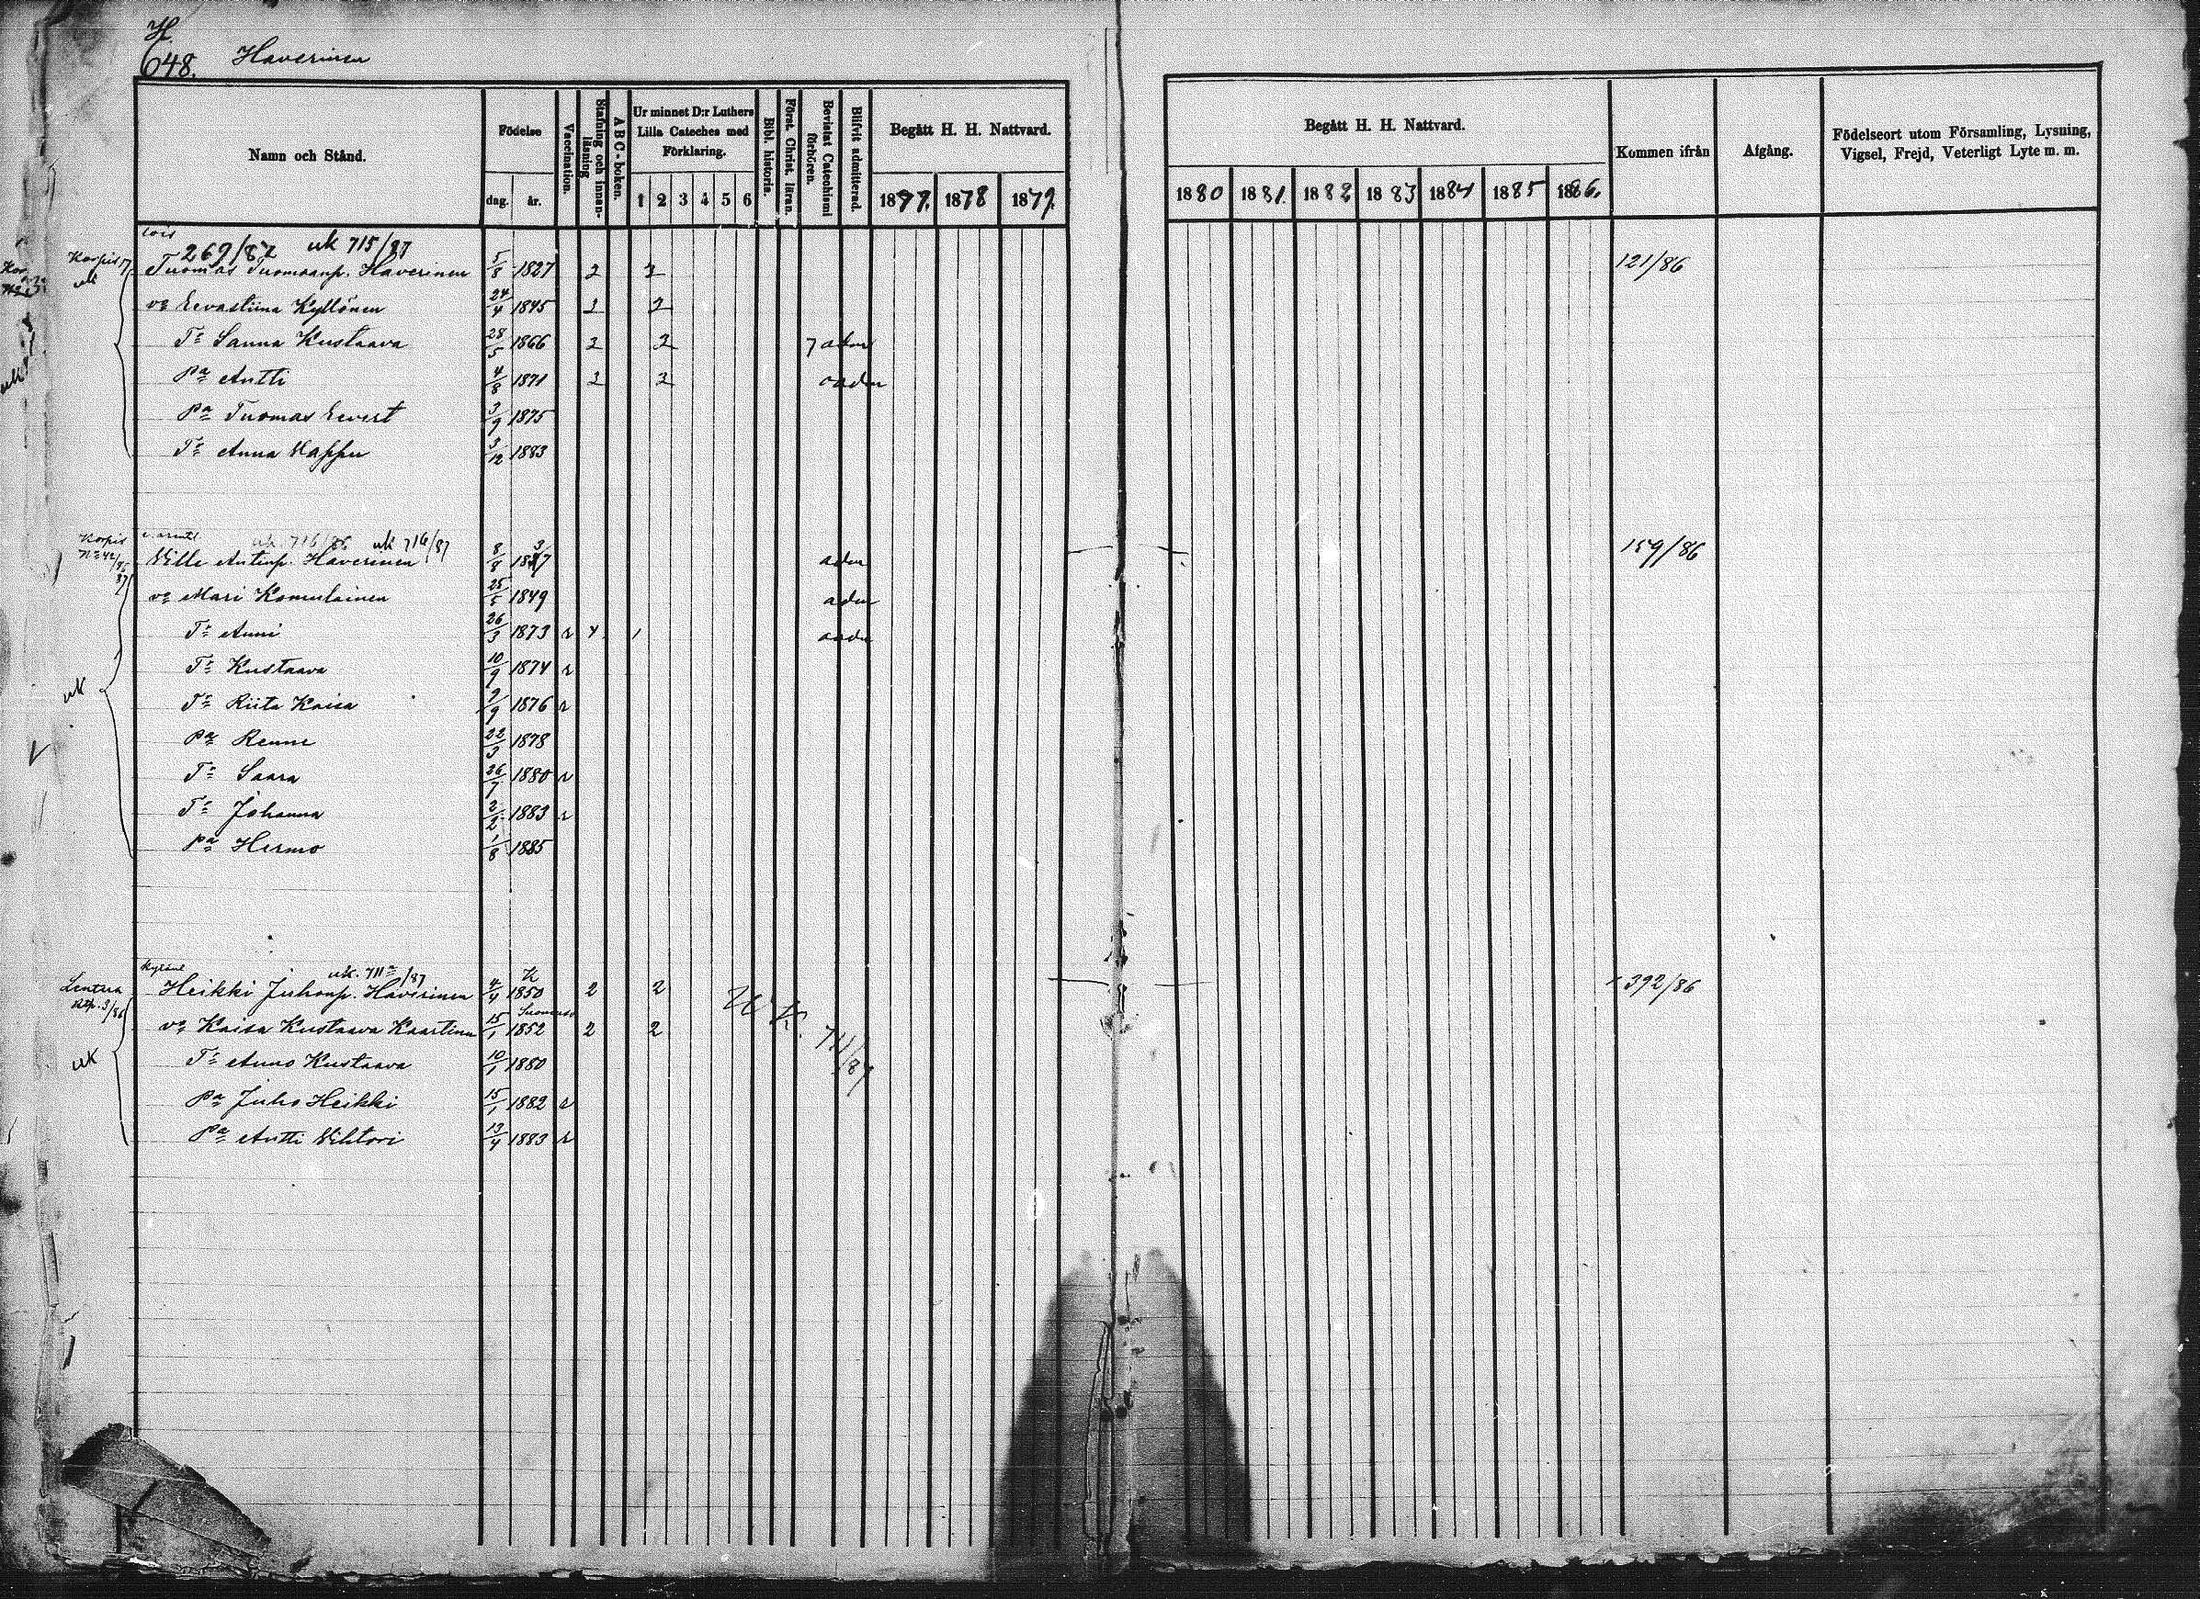 H.
648. Haverinen
Namn och Stånd.
Födelse
dag. år.
Vaccination.
Stafning och innanläsning
ABC-boken.
Ur minnet D:r Luthers Lilla Cateches med Förklaring.
1 2 3 4 5 6
Bibl. historia.
Förat. Christ. läran.
Bevistat Catechismi förhören.
Blifvit admitterad.
Begått H. H. Nattvard.
1877. 1878 1879.
Begått H. H. Nattvard.
1880 1881. 1882 1883 1884 1885 1886.
Kommen ifrån
Afgång.
Födelseort utom Församling, Lysning, Vigsel, Frejd, Veterligt Lyte m. m.
lois
269/87 uk 715/87
Tuomas Tuomaanp. Haverinen 5/8 1827 2 2 121/86
uk
vo Eevastiina Kyllönen 24/4 1845 1 2
Tr Sanna Kustaava 28/5 1866 2 2 7 adm
Pa Antti 4/8 1871 2 2 oadm
Pa Tuomas Evert 3/9 1875
Tr Anna Kappu 3/12 1883
Korpis uk 716/86 uk 716/87
Wille Antinp. Haverinen 8/8 1837 adm 159/86
vo Mari Komulainen 25/5 1849 adm
Tr Anni 26/3 1873 r 4 1 oadm
Tr Kustaava 10/9 1874 r
uk
Tr Riita Kaisa 9/9 1876 r
Pa Renne 22/3 1878
Tr Saara 26/7 1880 r
Tr Johanna 2/2 1883 r
Pa Hermo 1/8 1885
uk. 711/87
Lentua
Heikki Juhonp. Haverinen 4/4 1850 2 2 392/86
vo Kaisa Kustaava Kaartinen 15/1 1852 2 2
uk 711/87
uk
Tr Anno Kustaava 10/1 1880
Pa Juho Heikki 15/1 1882 r
Pa Antti Vihtori 13/4 1883 r